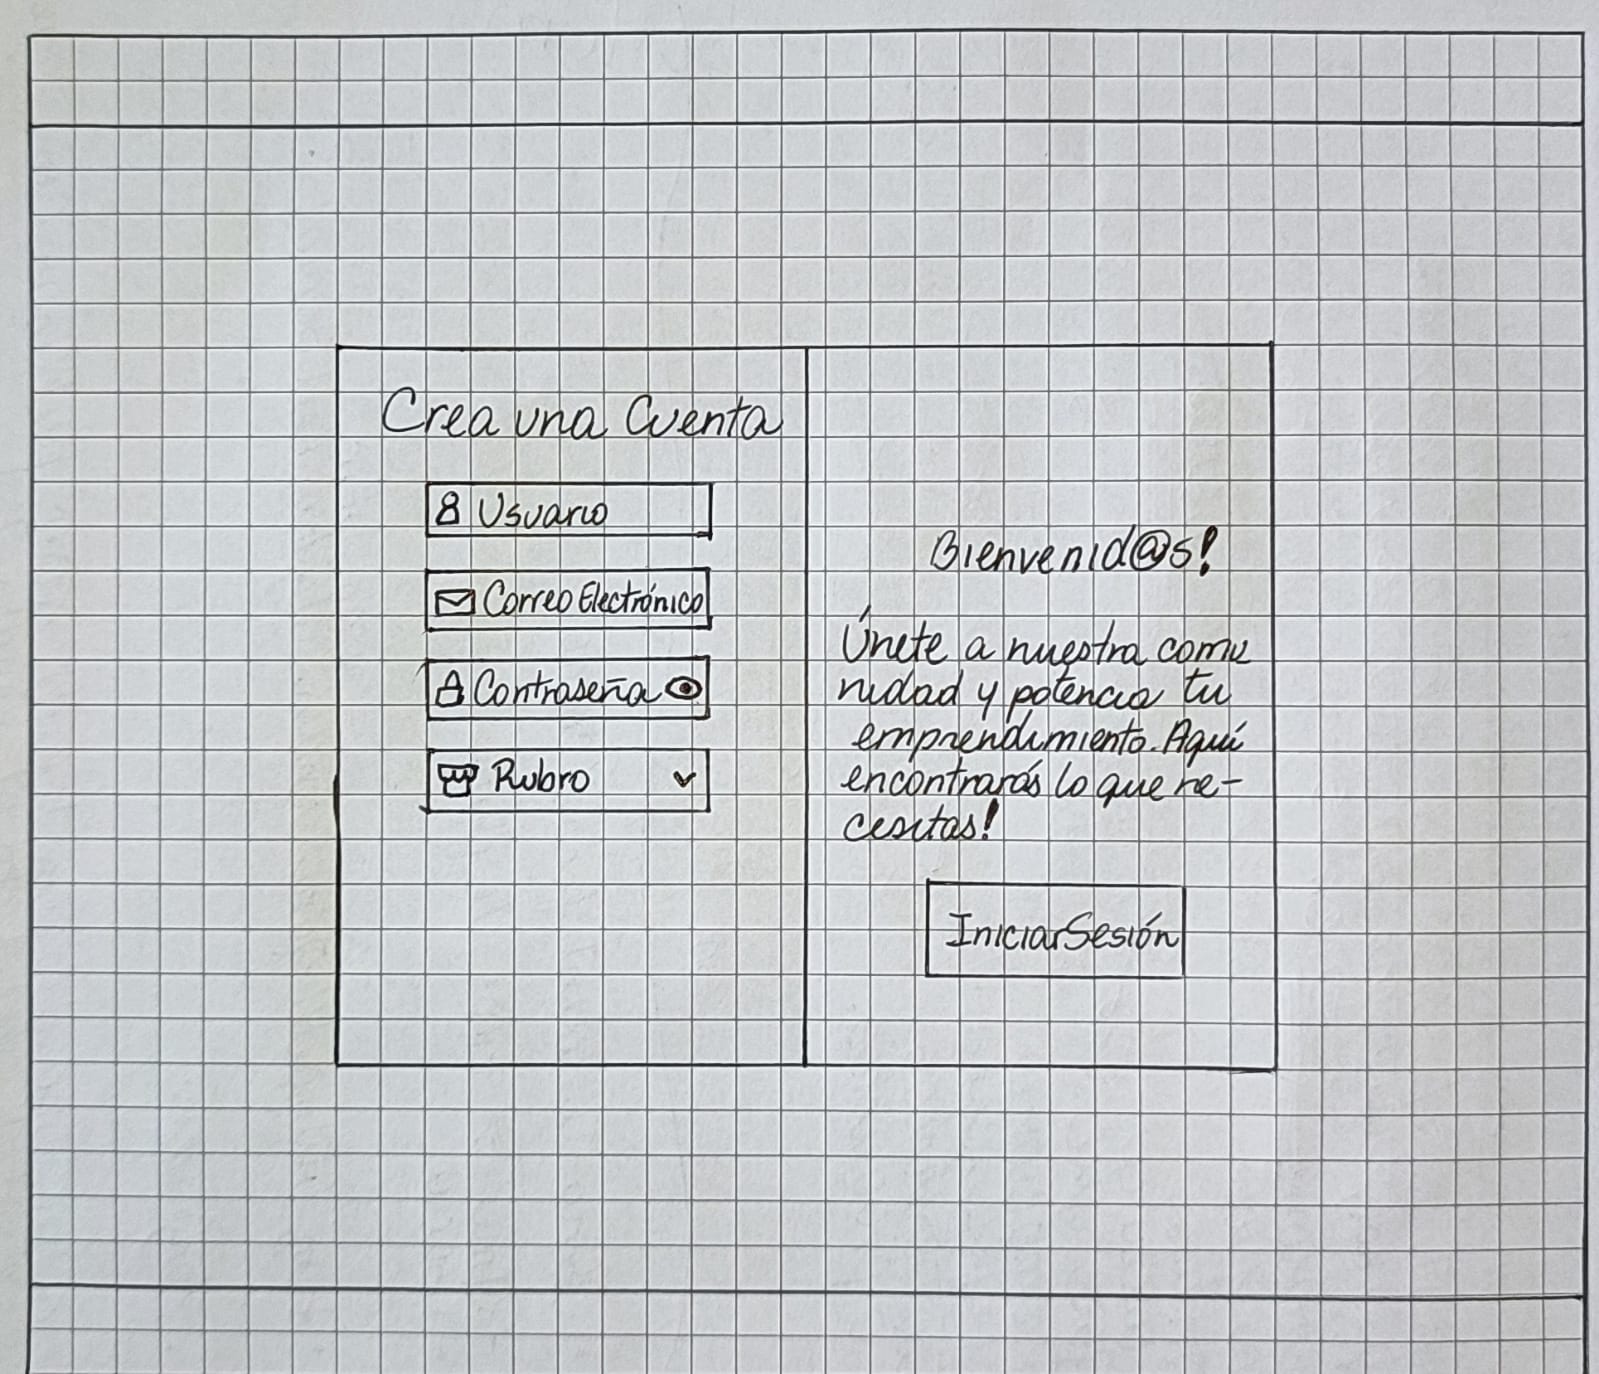 Crea una Cuenta
Usuario
Correo Electrónico
Contraseña
Rubro
Bienvenid@s!
Únete a nuestra comu
nidad y potencia tu
emprendimiento. Aquí
encontrarás lo que ne-
cesitas!
Iniciar Sesión